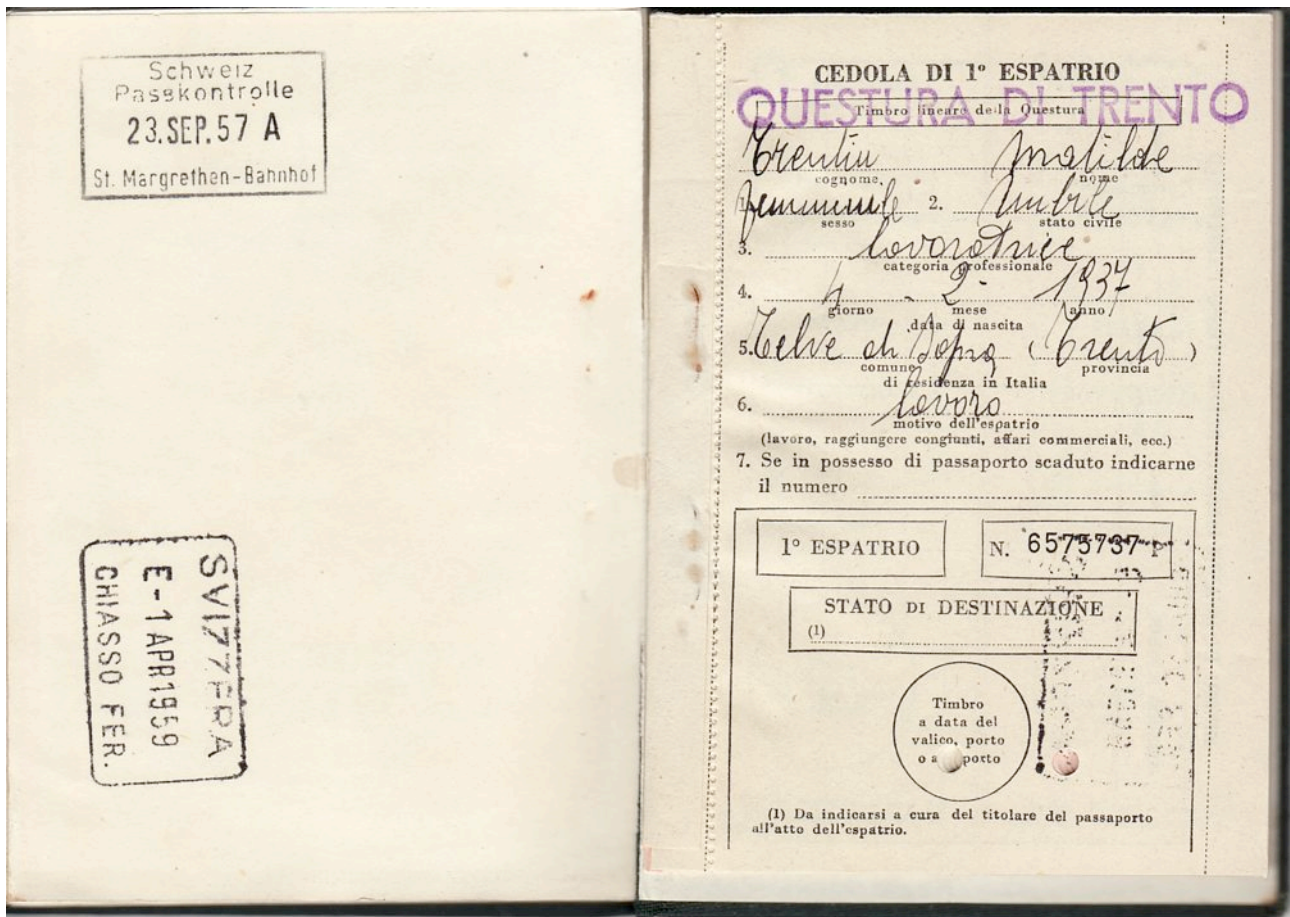 Schweiz
Passkontrolle
23.SEP.57 A
St. Margrethen-Bahnhof
SVIZZERA
E-1 APR 1959
CHIASSO FER.
CEDOLA DI 1º ESPATRIO
QUESTURA DI TRENTO
Timbro lineare della Questura
Trentin Matilde
cognome nome
1. femminile 2. Nubile
sesso stato civile
3. lavoratrice
categoria professionale
4. 4 - 2 - 1937
giorno mese anno
data di nascita
5. Telve di Sopra (Trento)
comune provincia
di residenza in Italia
6. lavoro
motivo dell'espatrio
(lavoro, raggiungere congiunti, affari commerciali, ecc.)
7. Se in possesso di passaporto scaduto indicarne
il numero
1º ESPATRIO N. 6575737 P
STATO DI DESTINAZIONE
(1)
Timbro
a data del
valico, porto
o aeroporto
(1) Da indicarsi a cura del titolare del passaporto
all'atto dell'espatrio.